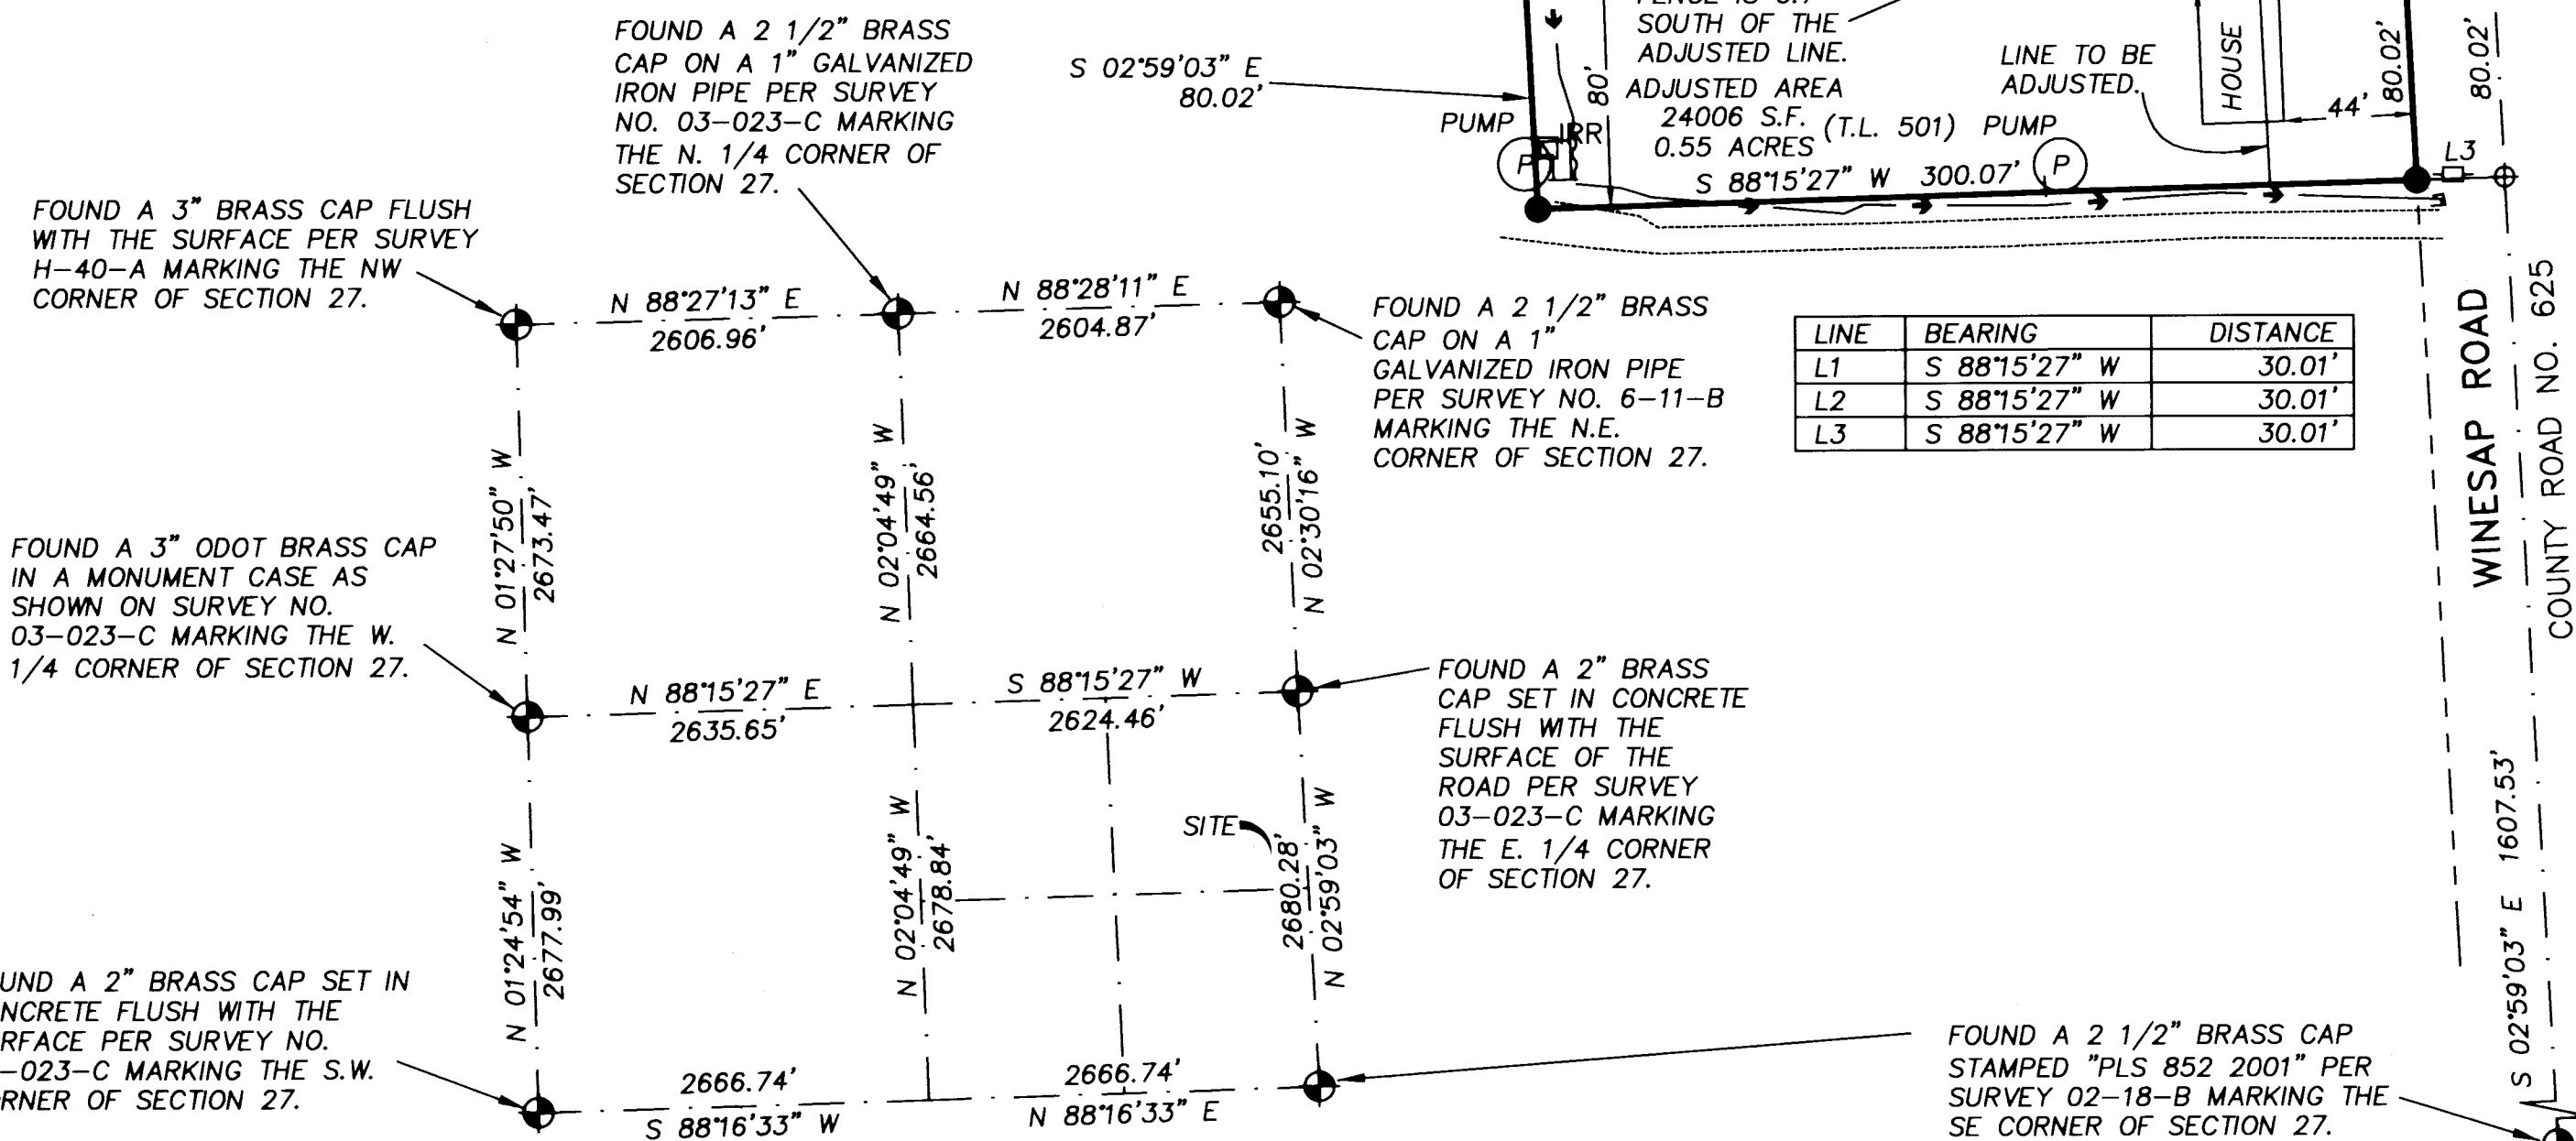 FOUND A 2 1/2" BRASS
CAP ON A 1" GALVANIZED
IRON PIPE PER SURVEY
NO. 03-023-C MARKING
THE N. 1/4 CORNER OF
SECTION 27.
S 02°59'03" E
80.02'
SOUTH OF THE
ADJUSTED LINE.
ADJUSTED AREA
24006 S.F.
0.55 ACRES
(T.L. 501)
80'
PUMP
IRR
P
PUMP
P
S 88°15'27" W 300.07'
LINE TO BE
ADJUSTED.
HOUSE
44'
80.02'
80.02'
L3
FOUND A 3" BRASS CAP FLUSH
WITH THE SURFACE PER SURVEY
H-40-A MARKING THE NW
CORNER OF SECTION 27.
N 88°27'13" E
2606.96'
N 88°28'11" E
2604.87'
FOUND A 2 1/2" BRASS
CAP ON A 1"
GALVANIZED IRON PIPE
PER SURVEY NO. 6-11-B
MARKING THE N.E.
CORNER OF SECTION 27.
LINE BEARING DISTANCE
L1 S 88°15'27" W 30.01'
L2 S 88°15'27" W 30.01'
L3 S 88°15'27" W 30.01'
WINESAP ROAD
COUNTY ROAD NO. 625
N 01°27'50" W
2673.47'
N 02°04'49" W
2664.56'
2655.10'
N 02°30'16" W
FOUND A 3" ODOT BRASS CAP
IN A MONUMENT CASE AS
SHOWN ON SURVEY NO.
03-023-C MARKING THE W.
1/4 CORNER OF SECTION 27.
N 88°15'27" E
2635.65'
S 88°15'27" W
2624.46'
FOUND A 2" BRASS
CAP SET IN CONCRETE
FLUSH WITH THE
SURFACE OF THE
ROAD PER SURVEY
03-023-C MARKING
THE E. 1/4 CORNER
OF SECTION 27.
SITE
N 01°24'54" W
2677.99'
N 02°04'49" W
2678.84'
2680.28'
N 02°59'03" W
S 02°59'03" E 1607.53'
UND A 2" BRASS CAP SET IN
NCRETE FLUSH WITH THE
RFACE PER SURVEY NO.
-023-C MARKING THE S.W.
RNER OF SECTION 27.
2666.74'
S 88°16'33" W
2666.74'
N 88°16'33" E
FOUND A 2 1/2" BRASS CAP
STAMPED "PLS 852 2001" PER
SURVEY 02-18-B MARKING THE
SE CORNER OF SECTION 27.